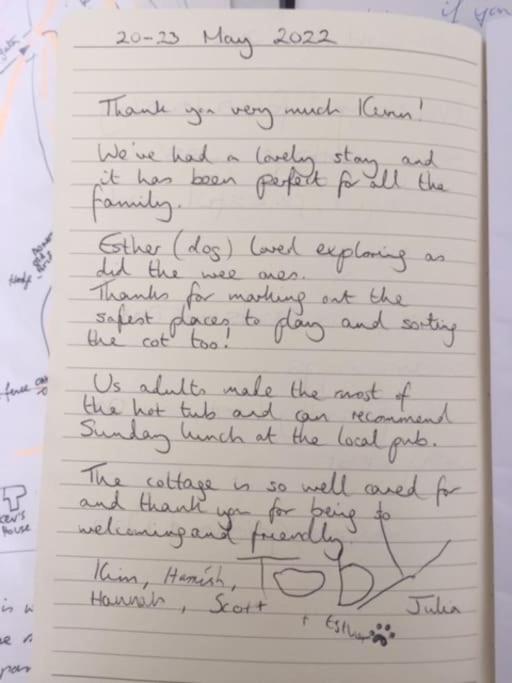 20-23 May 2022
Thank you very much Kenn!
We've had a lovely stay and
it has been perfect for all the
family.
Esther (dog) loved exploring as
did the wee ones.
Thanks for marking out the
safest places to play and sorting
the cot too!
Us adults make the most of
the hot tub and can recommend
Sunday lunch at the local pub.
The cottage is so well cared for
and thank you for being so
welcoming and friendly
Kim, Hamish, TOBY
Hannah, Scott Julia
+ Esther
if you
House